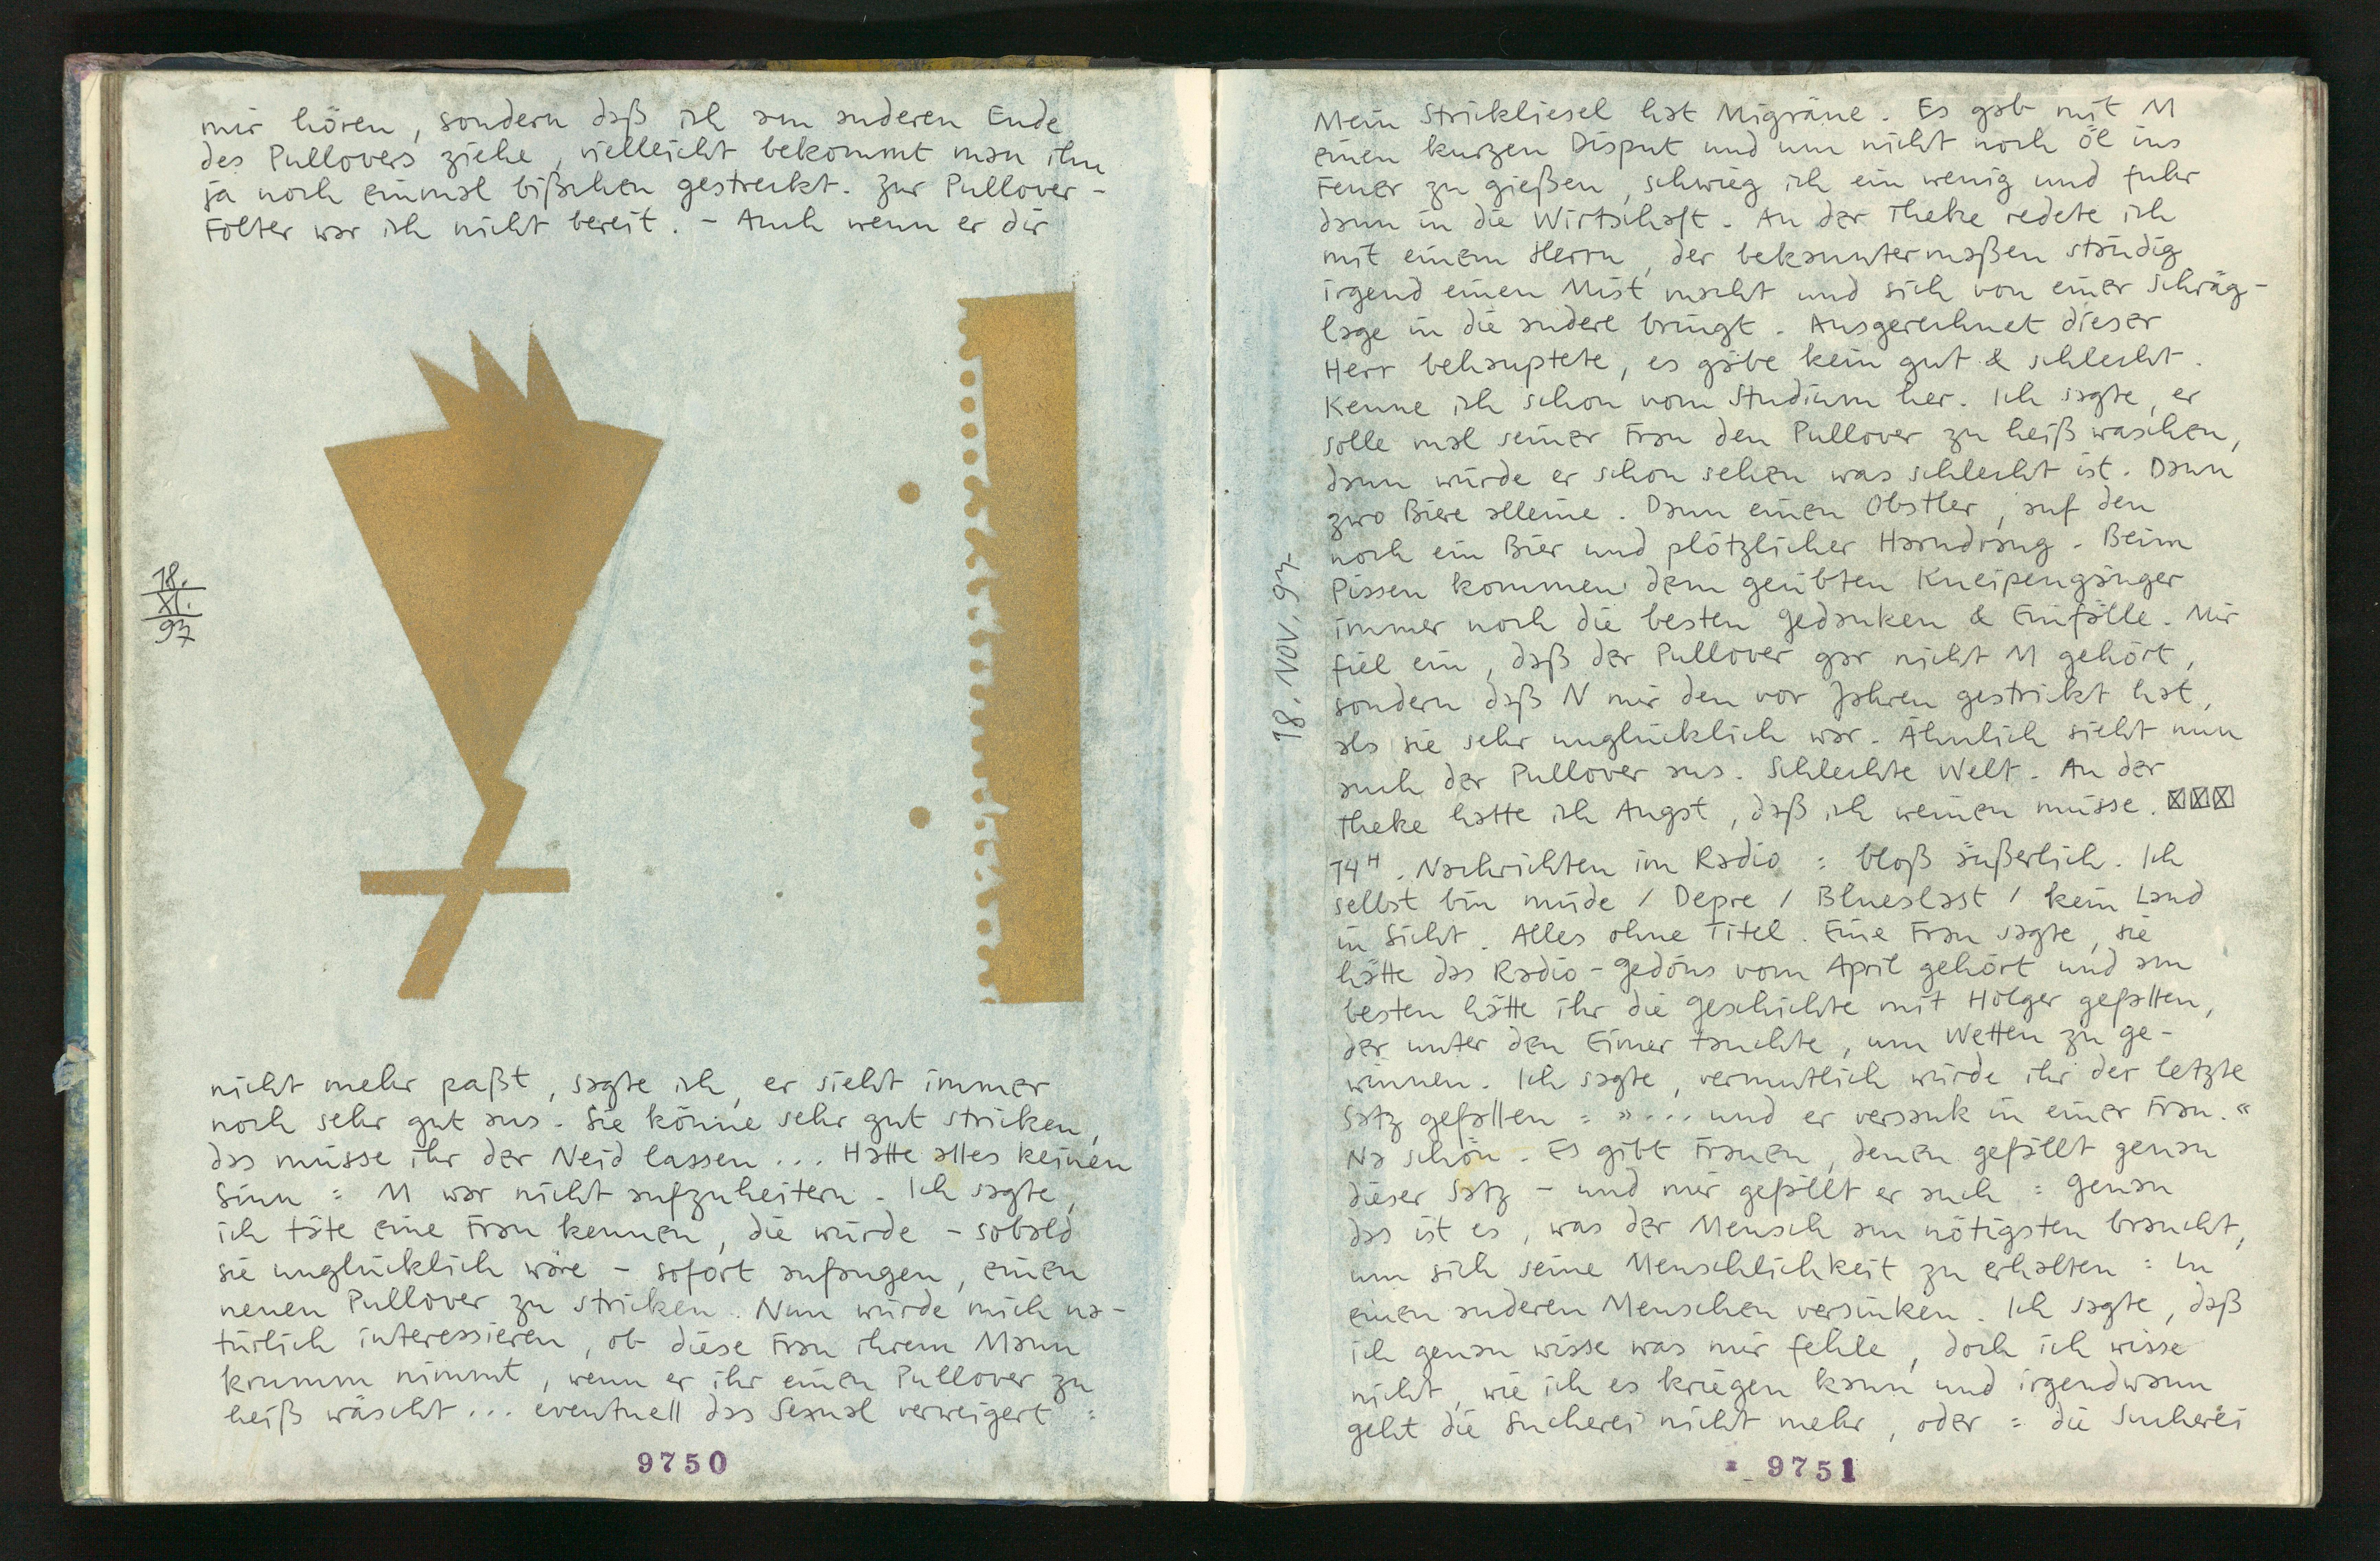 mir hören, sondern daß ich am anderen Ende
des Pullovers ziehe, vielleicht bekommt man ihn
ja noch einmal bißchen gestreckt. Zur Pullover-
Folter war ich nicht bereit. – Auch wenn er dir
18.
XI.
97
nicht mehr paßt, sagte ich, er sieht immer
noch sehr gut aus. Sie könne sehr gut stricken,
das müsse ihr der Neid lassen... Hatte alles keinen
Sinn : M war nicht aufzuheitern. Ich sagte,
ich täte eine Frau kennen, die würde – sobald
sie unglücklich wäre – sofort anfangen, einen
neuen Pullover zu stricken. Nun würde mich na-
türlich interessieren, ob diese Frau ihrem Mann
krumm nimmt, wenn er ihr einen Pullover zu
heiß wäscht... eventuell das Sexual verweigert :
9750
18. NOV. 97
Mein Strickliesel hat Migräne. Es gab mit M
einen kurzen Disput und um nicht noch Öl ins
Feuer zu gießen, schwieg ich ein wenig und fuhr
dann in die Wirtschaft. An der Theke redete ich
mit einem Herrn, der bekanntermaßen ständig
irgend einen Mist macht und sich von einer Schräg-
lage in die andere bringt. Ausgerechnet dieser
Herr behauptete, es gäbe kein gut & schlecht.
Kenne ich schon vom Studium her. Ich sagte, er
solle mal seiner Frau den Pullover zu heiß waschen,
dann würde er schon sehen was schlecht ist. Dann
zwo Biere alleine. Dann einen Obstler, auf den
noch ein Bier und plötzlicher Harndrang. Beim
Pissen kommen dem geübten Kneipengänger
immer noch die besten Gedanken & Einfälle. Mir
fiel ein, daß der Pullover gar nicht M gehört,
sondern daß N mir den vor Jahren gestrickt hat,
als sie sehr unglücklich war. Ähnlich sieht nun
auch der Pullover aus. Schlechte Welt. An der
Theke hatte ich Angst, daß ich weinen müsse. ☒☒☒
14H. Nachrichten im Radio : bloß äußerlich. Ich
selbst bin müde / Depre / Blueslast / kein Land
in Sicht. Alles ohne Titel. Eine Frau sagte, sie
hätte das Radio-Gedöns vom April gehört und am
besten hätte ihr die Geschichte mit Holger gefallen,
der unter den Eimer tauchte, um Wetten zu ge-
winnen. Ich sagte, vermutlich würde ihr der letzte
Satz gefallen : »... und er versank in einer Frau.«
Na schön. Es gibt Frauen, denen gefällt genau
dieser Satz – und mir gefällt er auch : Genau
das ist es, was der Mensch am nötigsten braucht,
um sich seine Menschlichkeit zu erhalten : In
einen anderen Menschen versinken. Ich sagte, daß
ich genau wisse was mir fehle, doch ich wisse
nicht, wie ich es kriegen kann und irgendwann
geht die Sucherei nicht mehr, oder : die Sucherei
9751